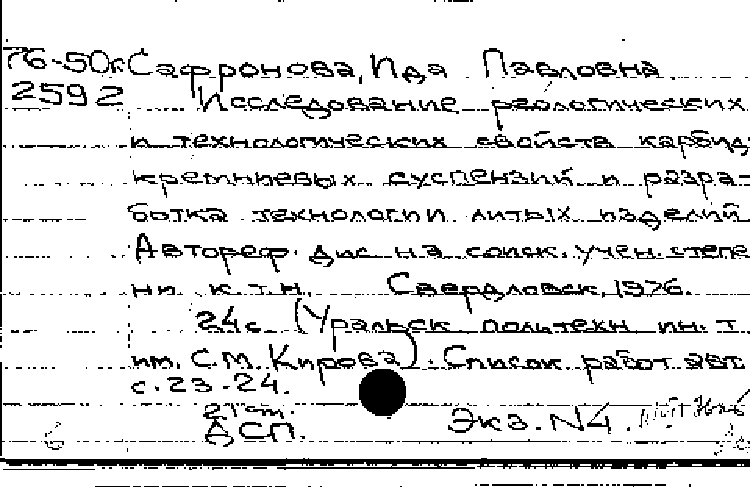 76-50к Сафронова, Ида Павловна
2592 Исследование реологических
и технологических свойств карбид-
кремниевых суспензий и разра-
ботка технологии литых изделий
Автореф. дис на соиск. учен. степе
ни к.т.н. Свердловск, 1976.
24с (Уральск политехн ин. т
им. С.М. Кирова). Список работ авт
с. 23-24.
21 см.
ДСП. Экз. N4.
6